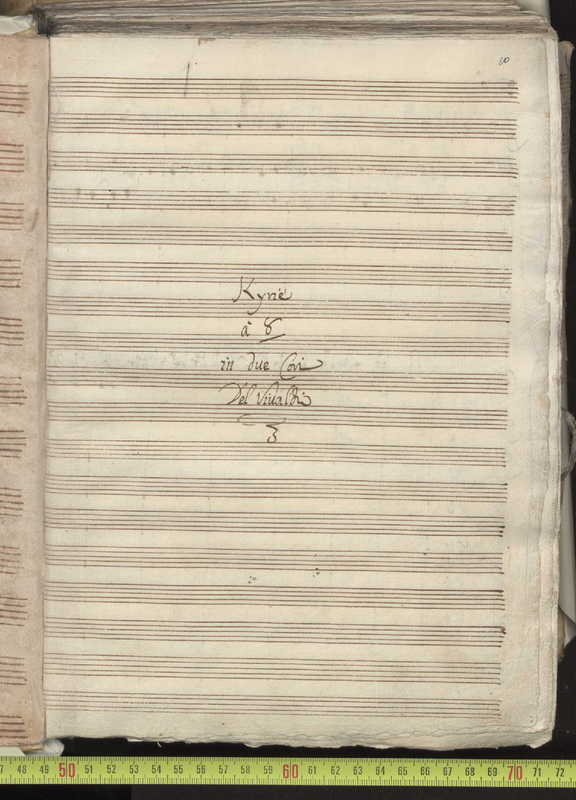 10
Kyrie
à 8
in due Cori
Del Viualdi
47 48 49 50 51 52 53 54 55 56 57 58 59 60 61 62 63 64 65 66 67 68 69 70 71 72